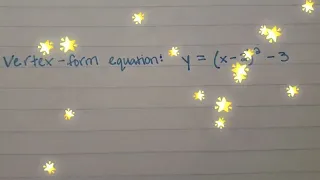 Vertex-form equation: y = (x-2)² - 3